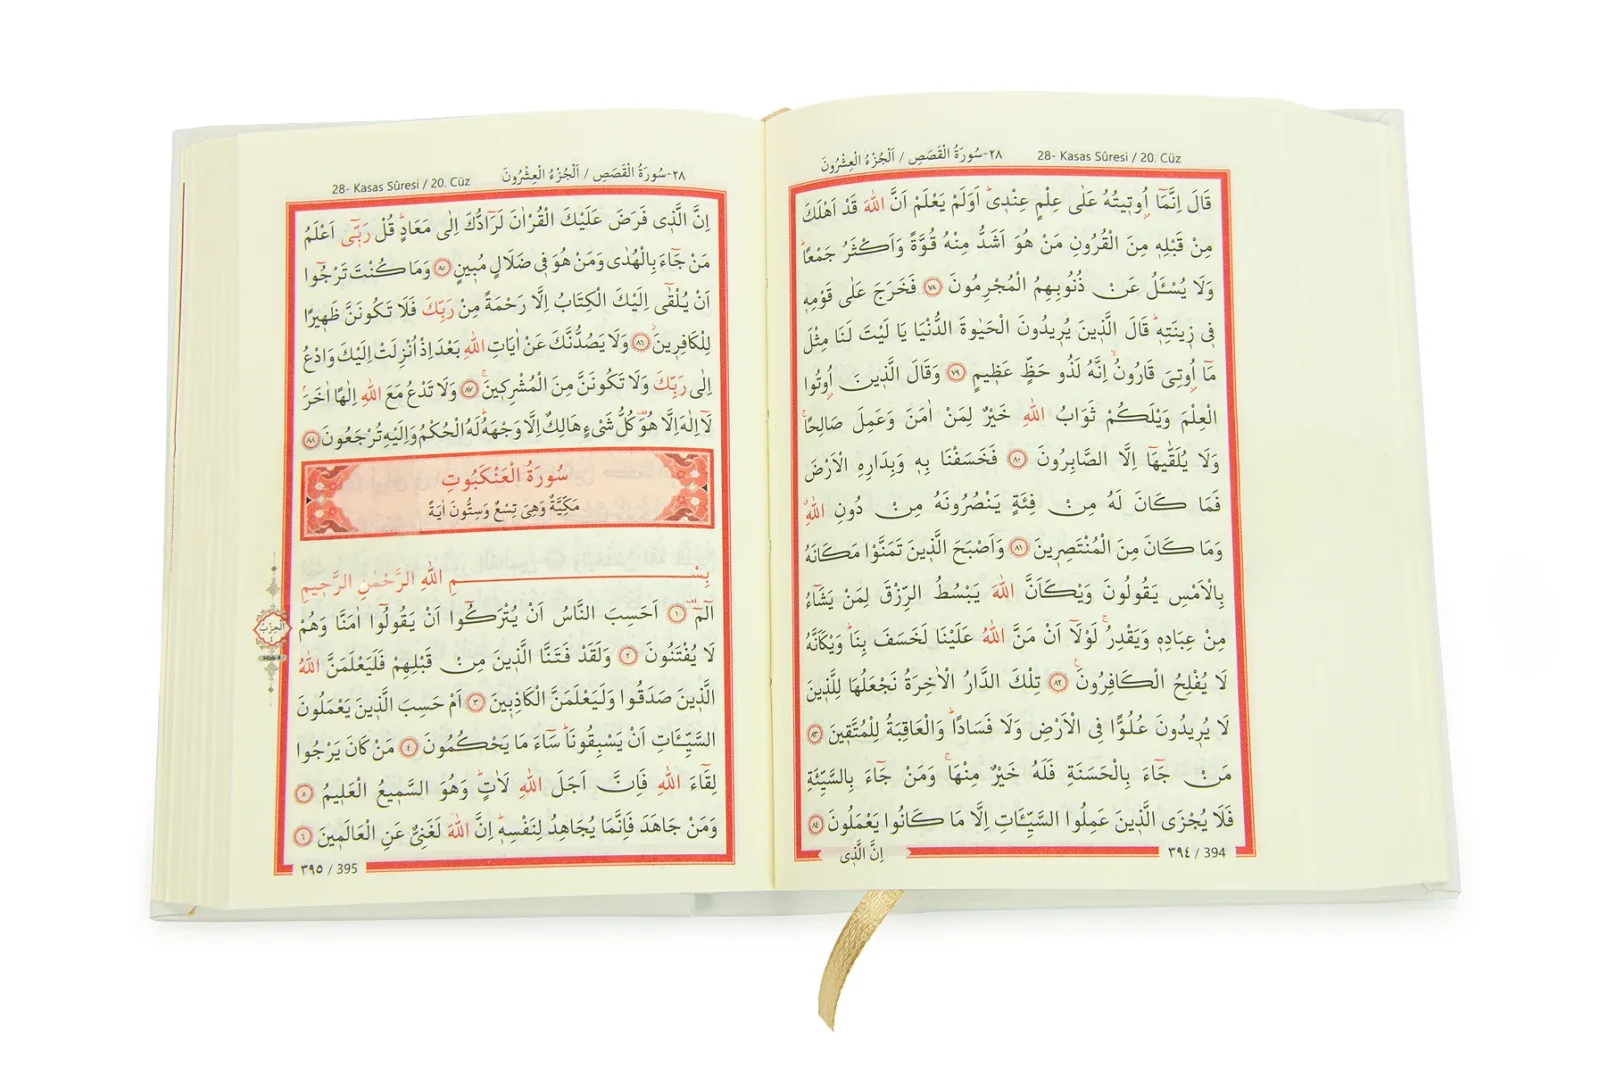 ٢٨-سُورَةُ الْقَصَصِ / اَلْجُزْءُ الْعِشْرُونَ 28- Kasas Sûresi / 20. Cüz
قَالَ اِنَّمَٓا اُو۫ت۪يتُهُ عَلٰى عِلْمٍ عِنْد۪يۜ اَوَلَمْ يَعْلَمْ اَنَّ اللّٰهَ قَدْ اَهْلَكَ
مِنْ قَبْلِه۪ مِنَ الْقُرُونِ مَنْ هُوَ اَشَدُّ مِنْهُ قُوَّةً وَاَكْثَرُ جَمْعًاۜ
وَلَا يُسْـَٔلُ عَنْ ذُنُوبِهِمُ الْمُجْرِمُونَ ﴿٧٨﴾ فَخَرَجَ عَلٰى قَوْمِه۪
ف۪ي ز۪ينَتِه۪ۜ قَالَ الَّذ۪ينَ يُر۪يدُونَ الْحَيٰوةَ الدُّنْيَا يَا لَيْتَ لَنَا مِثْلَ
مَٓا اُو۫تِيَ قَارُونُۙ اِنَّهُ لَذُو حَظٍّ عَظ۪يمٍ ﴿٧٩﴾ وَقَالَ الَّذ۪ينَ اُو۫تُوا
الْعِلْمَ وَيْلَكُمْ ثَوَابُ اللّٰهِ خَيْرٌ لِمَنْ اٰمَنَ وَعَمِلَ صَالِحًاۚ
وَلَا يُلَقّٰيهَٓا اِلَّا الصَّابِرُونَ ﴿٨٠﴾ فَخَسَفْنَا بِه۪ وَبِدَارِهِ الْاَرْضَ
فَمَا كَانَ لَهُ مِنْ فِئَةٍ يَنْصُرُونَهُ مِنْ دُونِ اللّٰهِۗ
وَمَا كَانَ مِنَ الْمُنْتَصِر۪ينَ ﴿٨١﴾ وَاَصْبَحَ الَّذ۪ينَ تَمَنَّوْا مَكَانَهُ
بِالْاَمْسِ يَقُولُونَ وَيْكَاَنَّ اللّٰهَ يَبْسُطُ الرِّزْقَ لِمَنْ يَشَٓاءُ
مِنْ عِبَادِه۪ وَيَقْدِرُۚ لَوْلَٓا اَنْ مَنَّ اللّٰهُ عَلَيْنَا لَخَسَفَ بِنَاۜ وَيْكَاَنَّهُ
لَا يُفْلِحُ الْكَافِرُونَ۟ ﴿٨٢﴾ تِلْكَ الدَّارُ الْاٰخِرَةُ نَجْعَلُهَا لِلَّذ۪ينَ
لَا يُر۪يدُونَ عُلُوًّا فِي الْاَرْضِ وَلَا فَسَادًاۜ وَالْعَاقِبَةُ لِلْمُتَّق۪ينَ ﴿٨٣﴾
مَنْ جَٓاءَ بِالْحَسَنَةِ فَلَهُ خَيْرٌ مِنْهَاۚ وَمَنْ جَٓاءَ بِالسَّيِّئَةِ
فَلَا يُجْزَى الَّذ۪ينَ عَمِلُوا السَّيِّـَٔاتِ اِلَّا مَا كَانُوا يَعْمَلُونَ ﴿٨٤﴾
٣٩٤ / 394 اِنَّ الَّذ۪ي
٢٨-سُورَةُ الْقَصَصِ / اَلْجُزْءُ الْعِشْرُونَ 28- Kasas Sûresi / 20. Cüz
اِنَّ الَّذ۪ي فَرَضَ عَلَيْكَ الْقُرْاٰنَ لَرَٓادُّكَ اِلٰى مَعَادٍۜ قُلْ رَبّ۪ٓي اَعْلَمُ
مَنْ جَٓاءَ بِالْهُدٰى وَمَنْ هُوَ ف۪ي ضَلَالٍ مُب۪ينٍ ﴿٨٥﴾ وَمَا كُنْتَ تَرْجُٓوا
اَنْ يُلْقٰٓى اِلَيْكَ الْكِتَابُ اِلَّا رَحْمَةً مِنْ رَبِّكَ فَلَا تَكُونَنَّ ظَه۪يرًا
لِلْكَافِر۪ينَۘ ﴿٨٦﴾ وَلَا يَصُدُّنَّكَ عَنْ اٰيَاتِ اللّٰهِ بَعْدَ اِذْ اُنْزِلَتْ اِلَيْكَ وَادْعُ
اِلٰى رَبِّكَ وَلَا تَكُونَنَّ مِنَ الْمُشْرِك۪ينَۚ ﴿٨٧﴾ وَلَا تَدْعُ مَعَ اللّٰهِ اِلٰهًا اٰخَرَۢ
لَٓا اِلٰهَ اِلَّا هُوَ۠ كُلُّ شَيْءٍ هَالِكٌ اِلَّا وَجْهَهُۜ لَهُ الْحُكْمُ وَاِلَيْهِ تُرْجَعُونَ ﴿٨٨﴾
سُورَةُ الْعَنْكَبُوتِ
مَكِّيَّةٌ وَهِيَ تِسْعٌ وَسِتُّونَ اٰيَةً
بِسْمِ اللّٰهِ الرَّحْمٰنِ الرَّح۪يمِ
الٓمٓ۠ ﴿١﴾ اَحَسِبَ النَّاسُ اَنْ يُتْرَكُٓوا اَنْ يَقُولُٓوا اٰمَنَّا وَهُمْ
لَا يُفْتَنُونَ ﴿٢﴾ وَلَقَدْ فَتَنَّا الَّذ۪ينَ مِنْ قَبْلِهِمْ فَلَيَعْلَمَنَّ اللّٰهُ
الَّذ۪ينَ صَدَقُوا وَلَيَعْلَمَنَّ الْكَاذِب۪ينَ ﴿٣﴾ اَمْ حَسِبَ الَّذ۪ينَ يَعْمَلُونَ
السَّيِّـَٔاتِ اَنْ يَسْبِقُونَاۜ سَٓاءَ مَا يَحْكُمُونَ ﴿٤﴾ مَنْ كَانَ يَرْجُوا
لِقَٓاءَ اللّٰهِ فَاِنَّ اَجَلَ اللّٰهِ لَاٰتٍۜ وَهُوَ السَّم۪يعُ الْعَل۪يمُ ﴿٥﴾
وَمَنْ جَاهَدَ فَاِنَّمَا يُجَاهِدُ لِنَفْسِه۪ۜ اِنَّ اللّٰهَ لَغَنِيٌّ عَنِ الْعَالَم۪ينَ ﴿٦﴾
اَلْحِزْبُ
٣٩٥ / 395